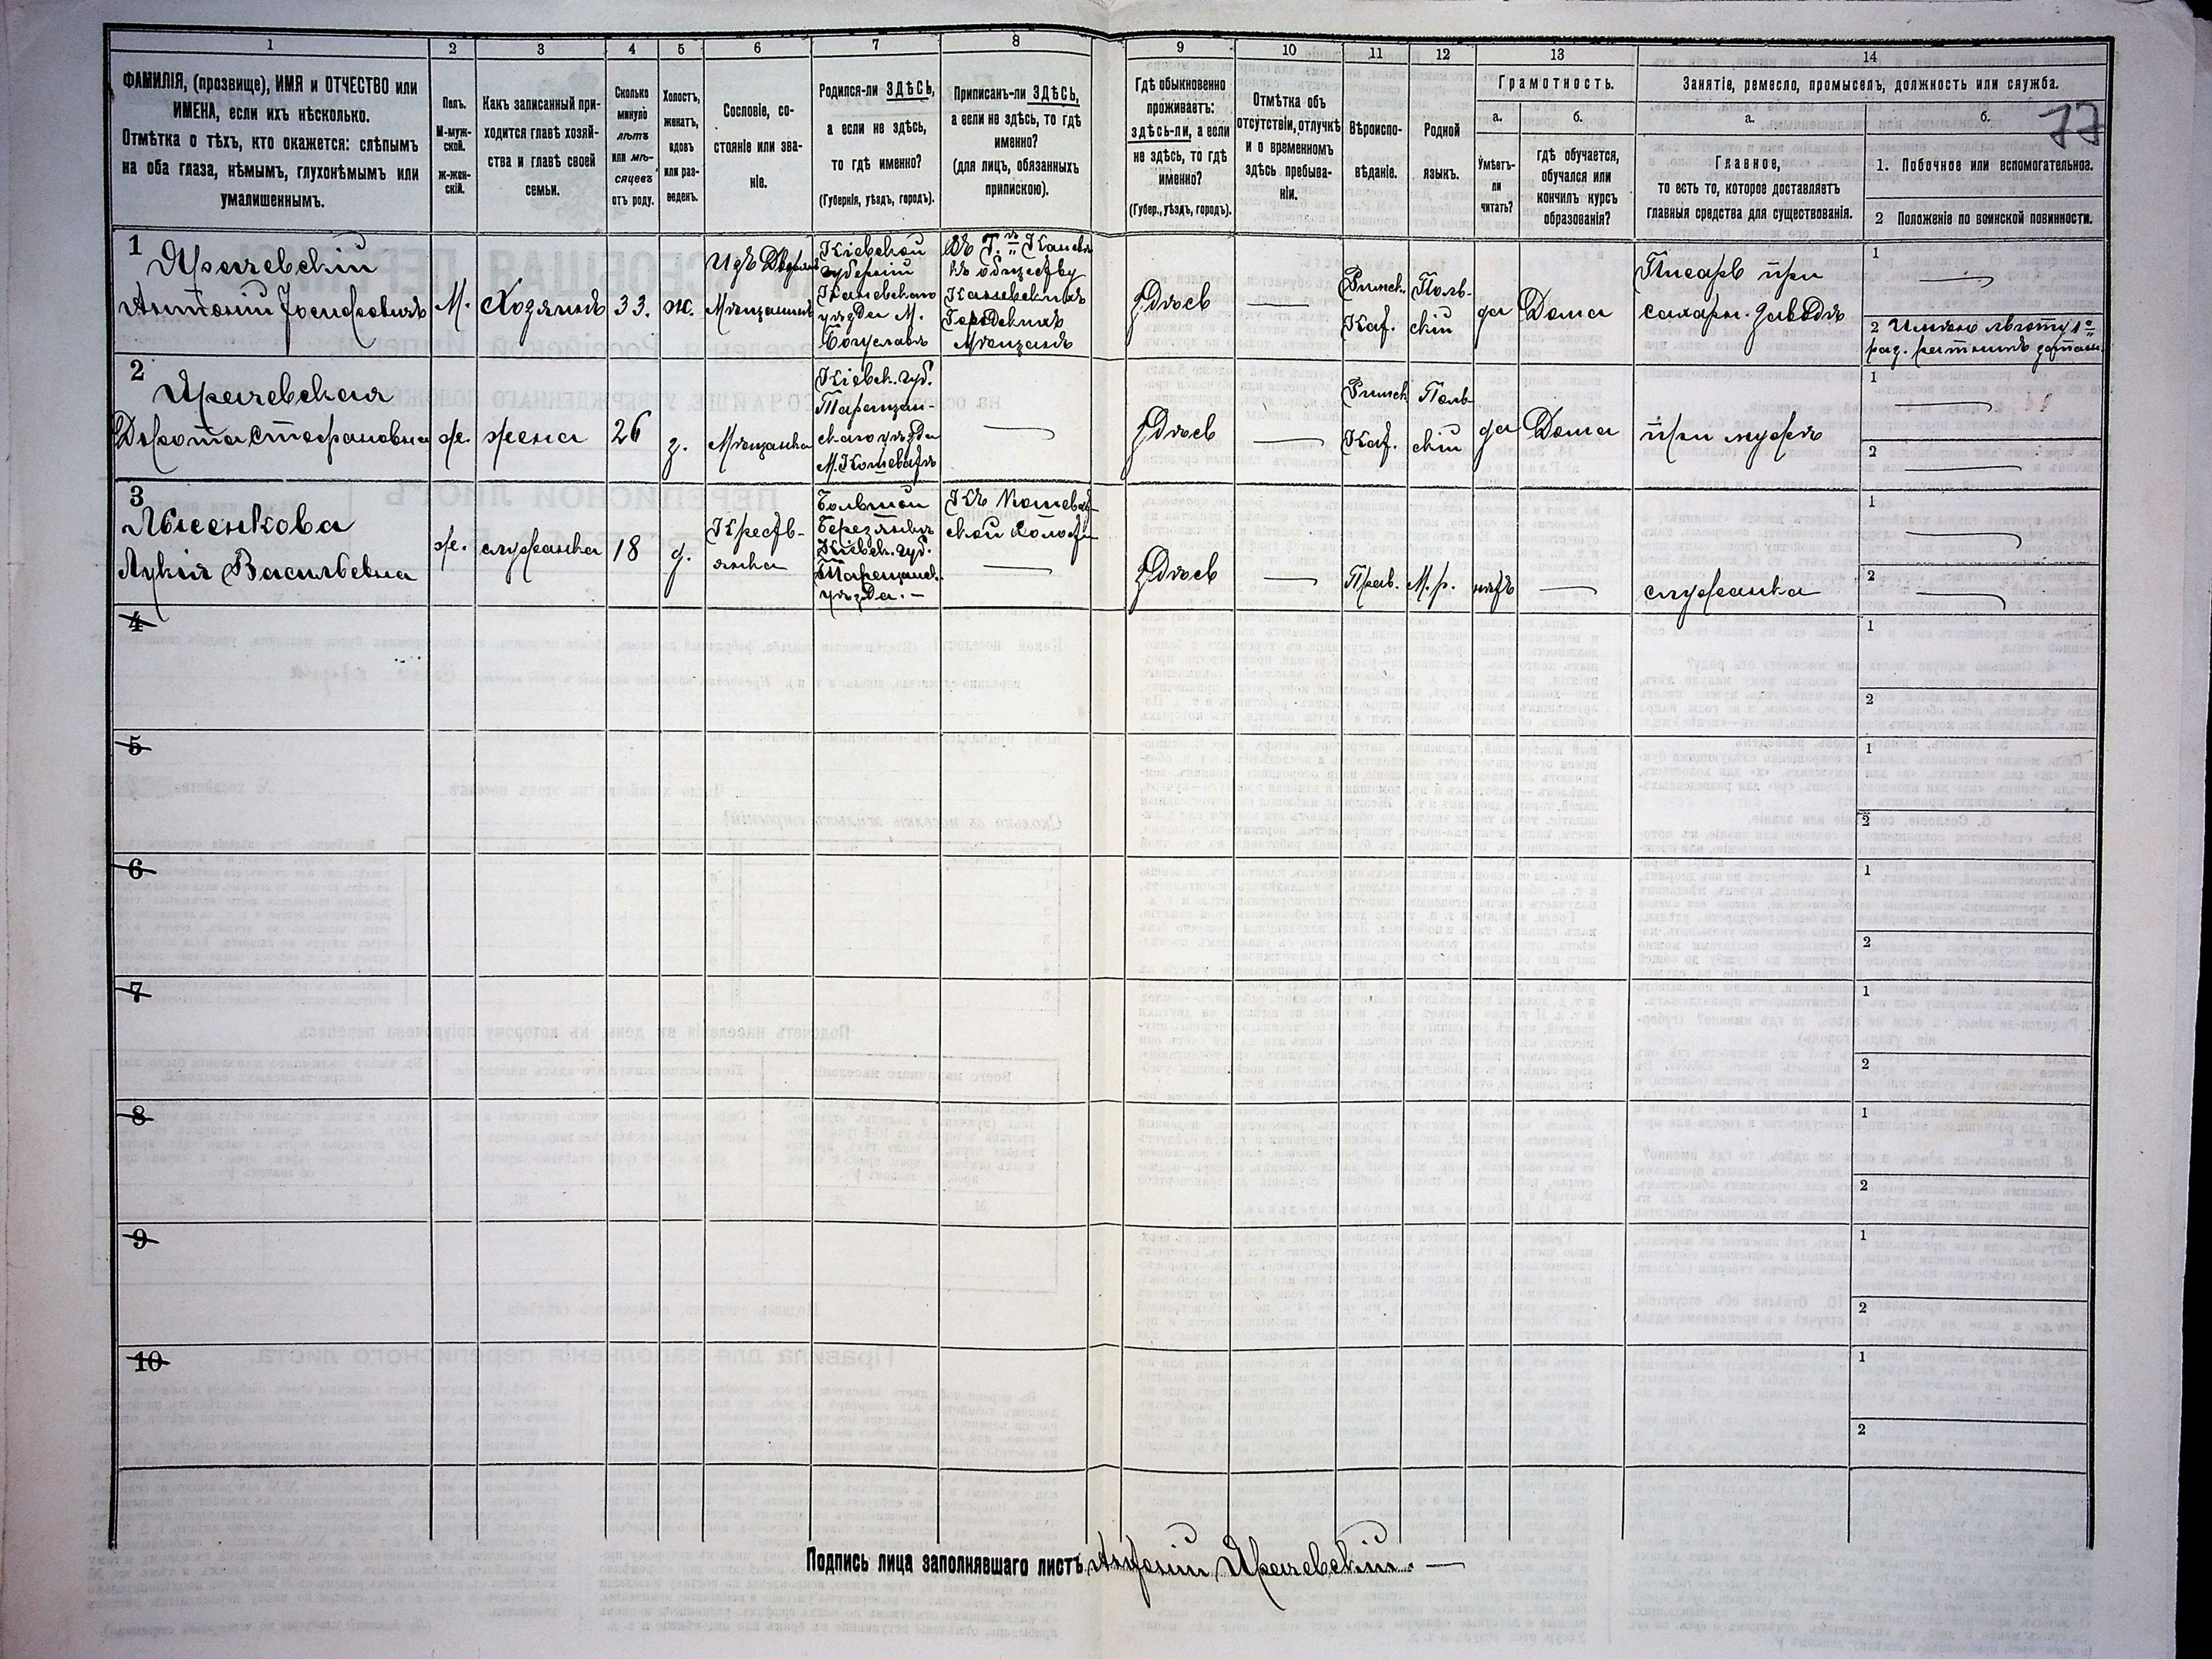 1
2
3
4
5
6
7
8
9
10
11
12
13
14
ФАМИЛІЯ, (прозвище), ИМЯ и ОТЧЕСТВО или
ИМЕНА, если ихъ нѣсколько.
Отмѣтка о тѣхъ, кто окажется: слѣпымъ
на оба глаза, нѣмымъ, глухонѣмымъ или
умалишеннымъ.
Полъ.
М-муж-
ской.
ж-жен-
скій.
Какъ записанный при-
ходится главѣ хозяй-
ства и главѣ своей
семьи.
Сколько
минуло
лѣтъ
или мѣ-
сяцевъ
отъ роду.
Холостъ,
женатъ,
вдовъ
или раз-
веденъ.
Сословіе, со-
стояніе или зва-
ніе.
Родился-ли ЗДѢСЬ,
а если не здѣсь,
то гдѣ именно?
(Губернія, уѣздъ, городъ).
Приписанъ-ли ЗДѢСЬ,
а если не здѣсь, то гдѣ
именно?
(для лицъ, обязанныхъ
припиской).
Гдѣ обыкновенно
проживаетъ:
здѣсь-ли, а если
не здѣсь, то гдѣ
именно?
(Губер., уѣздъ, городъ).
Отмѣтка объ
отсутствіи, отлучкѣ
и о временномъ
здѣсь пребыва-
ніи.
Вѣроиспо-
вѣданіе.
Родной
языкъ.
Грамотность.
а.
Умѣетъ-
ли
читать?
б.
гдѣ обучается,
обучался или
кончилъ курсъ
образованія?
Занятіе, ремесло, промыселъ, должность или служба.
а.
Главное,
то есть то, которое доставляетъ
главныя средства для существованія.
б.
77
1. Побочное или вспомогательное.
2 Положеніе по воинской повинности.
1
Ярачевскій
Антоній Іосифовичъ
М.
Хозяинъ
33.
ж.
Изъ Дворянъ
Мѣщанинъ
Кіевской
губерніи
Каневскаго
уѣзда М.
Богуславъ
Къ обществу
Каневскихъ
Городскихъ
Мѣщанъ
Здѣсь
—
Римск.
Каѳ.
Поль-
скій
да
Дома
Писарь при
сахарн. заводѣ
1
—
2
2
Ярачевская
Дорота Стефановна
ж.
жена
26
з.
Мѣщанка
Кіевск. губ.
Таращан-
скаго уѣзда
М. Кошеватъ
—
Здѣсь
—
Римск
Каѳ.
Поль-
скій
да
Дома
при мужѣ
1
—
2
—
3
Лысенкова
Лукія Васильевна
ж.
служанка
18
д.
Кресть-
янка
Большой
Березянкѣ
Кіевск. губ.
Таращанск.
уѣзда. —
Къ Кошеват-
ской Волости
—
Здѣсь
—
Прав.
М. р.
нѣтъ
—
служанка
1
—
2
—
4
1
2
5
1
2
6
1
2
7
1
2
8
1
2
9
1
2
10
1
2
Подпись лица заполнявшаго листъ Антоній Ярачевскій. —